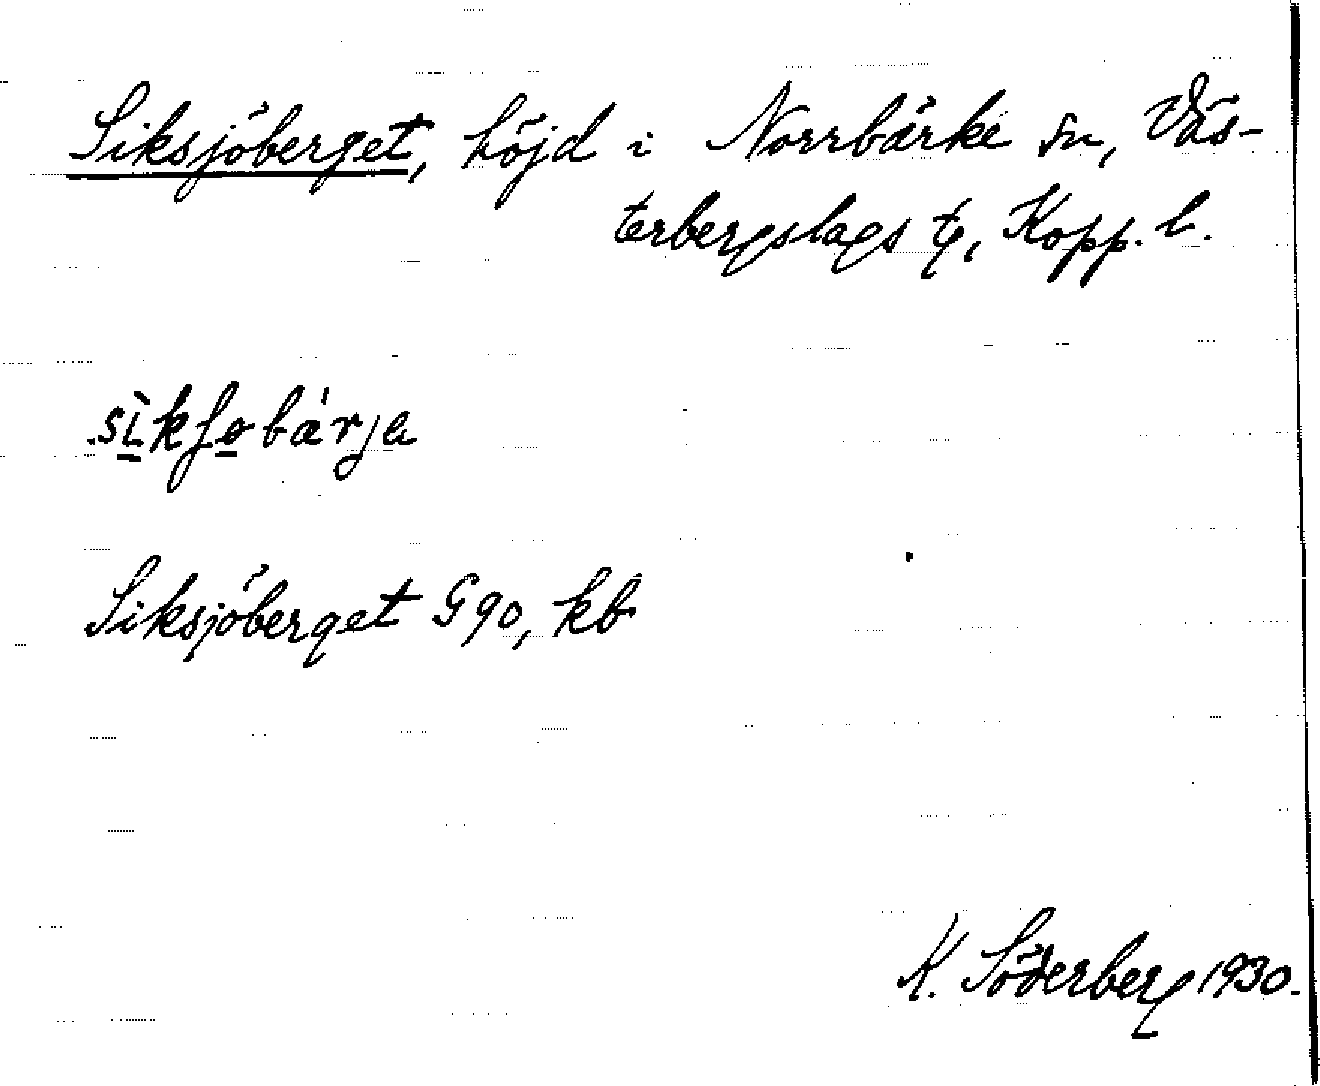 Siksjöberget, höjd i Norrbärke sn, Väs-
terbergslags tg, Kopp. l.
sìkʃobárja
Siksjöberget G90, kb
K. Söderberg 1930.